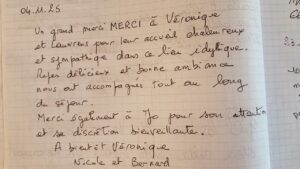 04.11.25
Un grand merci MERCI à Véronique
et Laurens pour leur accueil chaleureux
et sympathique dans ce lieu idyllique.
Repas délicieux et bonne ambiance
nous ont accompagnés tout au long
du séjour.
Merci également à Jo pour son attention
et sa discrétion bienveillante.
A bientôt Véronique
Nicole et Bernard